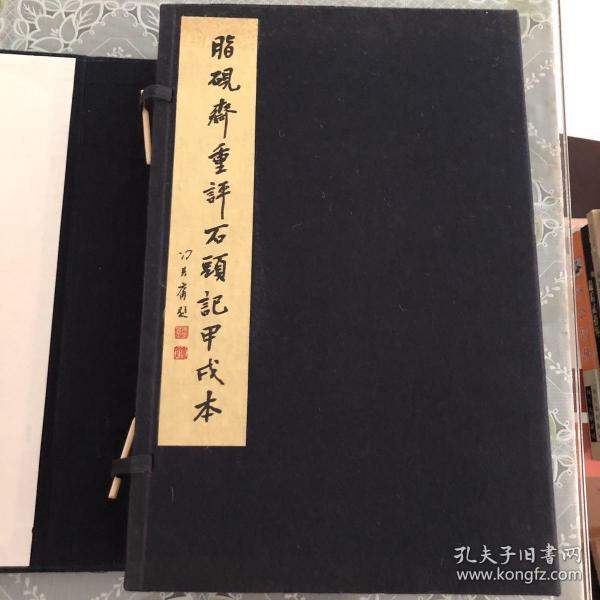 脂硯齋重評石頭記甲戌本
冯其庸题
孔夫子旧书网
www.kongfz.com